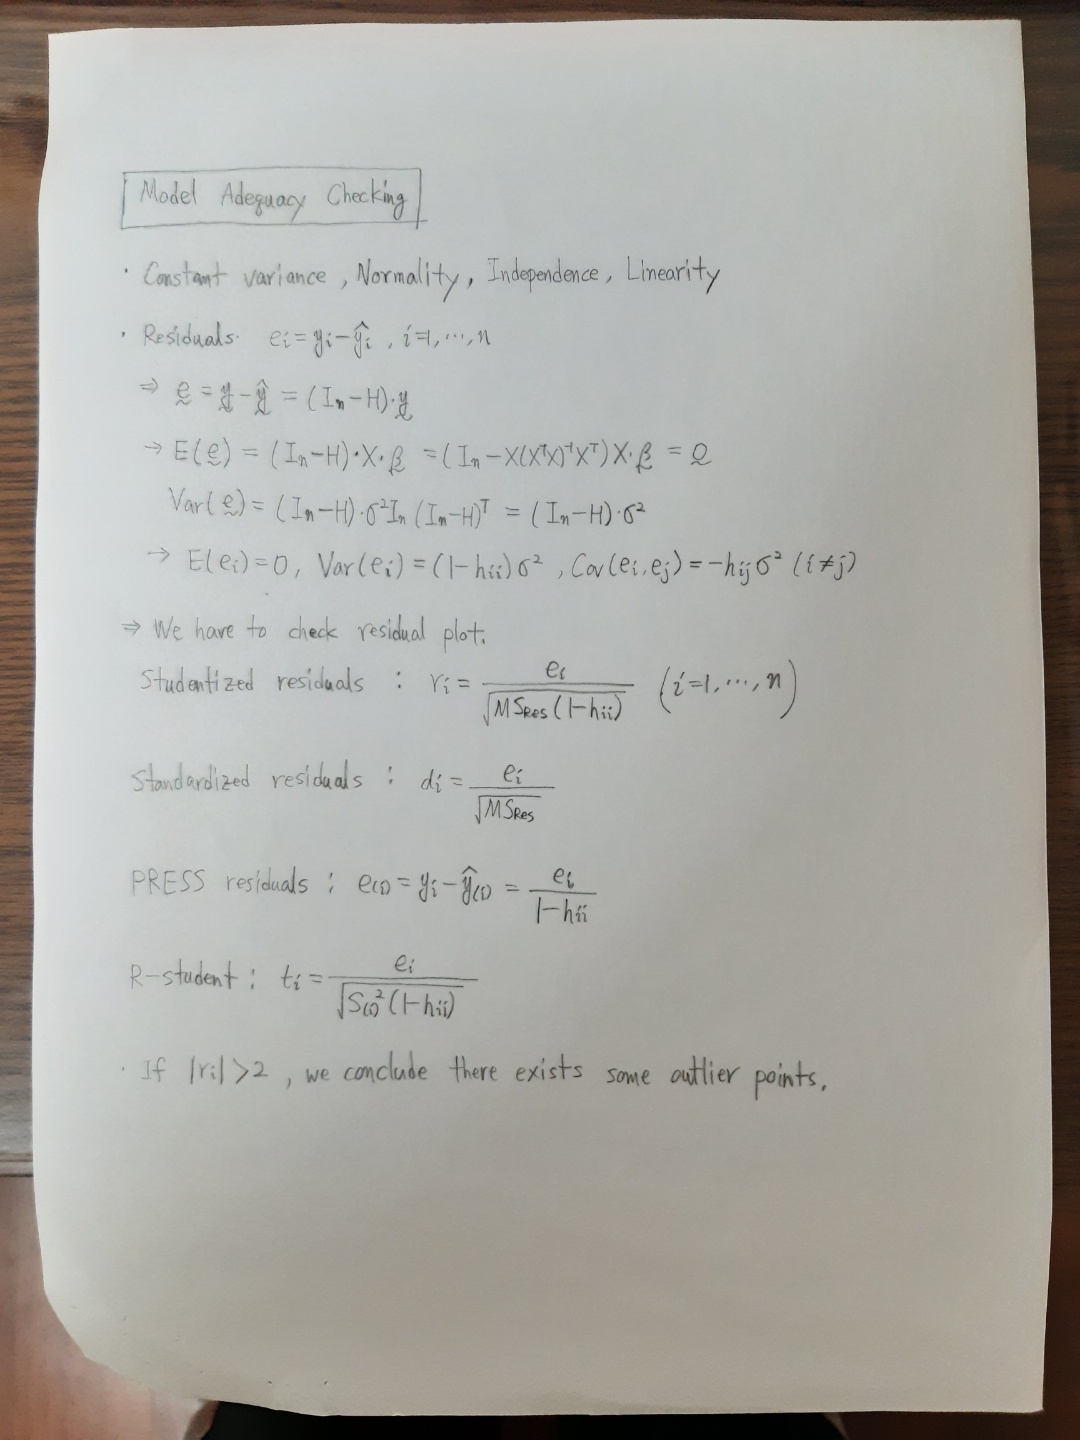 Model Adequacy Checking
· Constant variance, Normality, Independence, Linearity
· Residuals. eᵢ = yᵢ - ŷᵢ , i=1, ⋯, n
⇒ ḛ = y̰ - ŷ̰ = (Iₙ - H)·y̰
→ E(ḛ) = (Iₙ - H)·X·β̰ = (Iₙ - X(XᵀX)⁻¹Xᵀ)X·β̰ = 0̰
Var(ḛ) = (Iₙ - H)·σ²Iₙ (Iₙ - H)ᵀ = (Iₙ - H)·σ²
→ E(eᵢ) = 0, Var(eᵢ) = (1 - hᵢᵢ)σ² , Cov(eᵢ, eⱼ) = -hᵢⱼσ² (i≠j)
⇒ We have to check residual plot.
Studentized residuals : rᵢ = eᵢ / √(MS_Res (1 - hᵢᵢ)) (i=1, ⋯, n)
Standardized residuals : dᵢ = eᵢ / √(MS_Res)
PRESS residuals : e₍ᵢ₎ = yᵢ - ŷ₍ᵢ₎ = eᵢ / (1 - hᵢᵢ)
R-student : tᵢ = eᵢ / √(S₍ᵢ₎² (1 - hᵢᵢ))
· If |rᵢ| > 2 , we conclude there exists some outlier points.